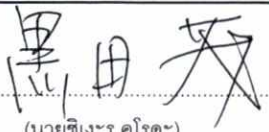 黒田 茂
(นายชิเงะรุ คุโรดะ)